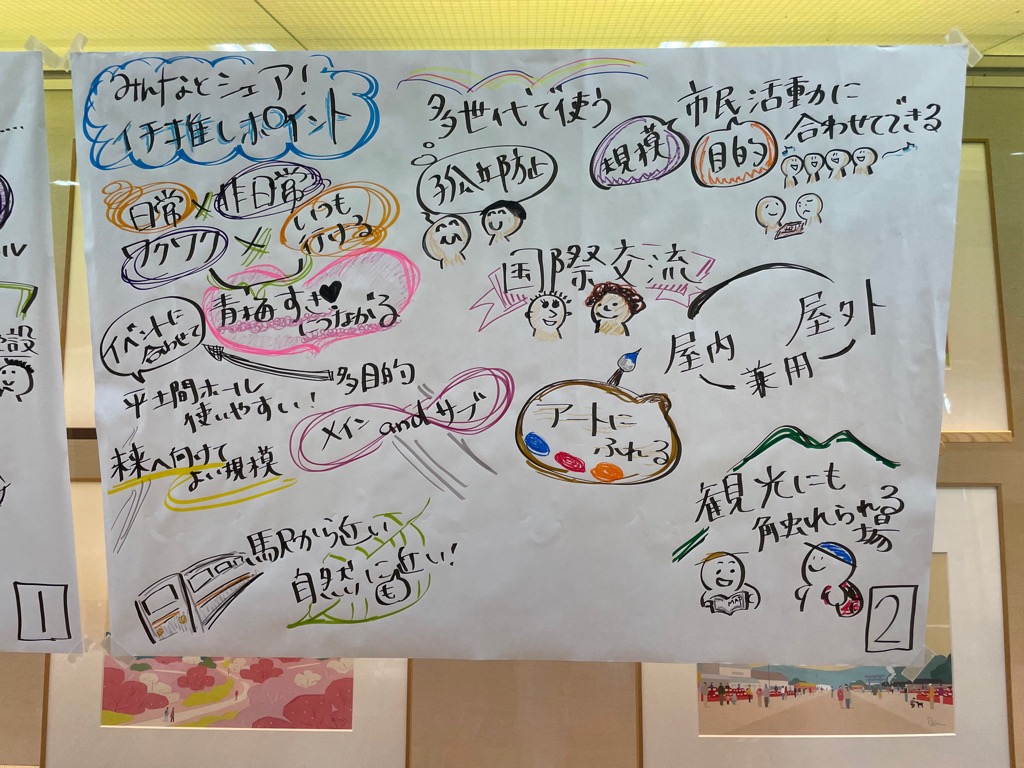 みんなとシェア!
イチ推しポイント
日常×非日常
ワクワク×いつも
行ける
青梅すき♥
につながる
イベントに
合わせて
多目的
平土間ホール
使いやすい!
メインandサブ
未来へ向けて
よい規模
駅から近い
自然にも近い!
多世代で使う
孤立防止
市民活動に
規模
目的
合わせてできる
国際交流
屋内
屋外
兼用
アートに
ふれる
観光にも
触れられる
場
MAP
2
ール
設
1